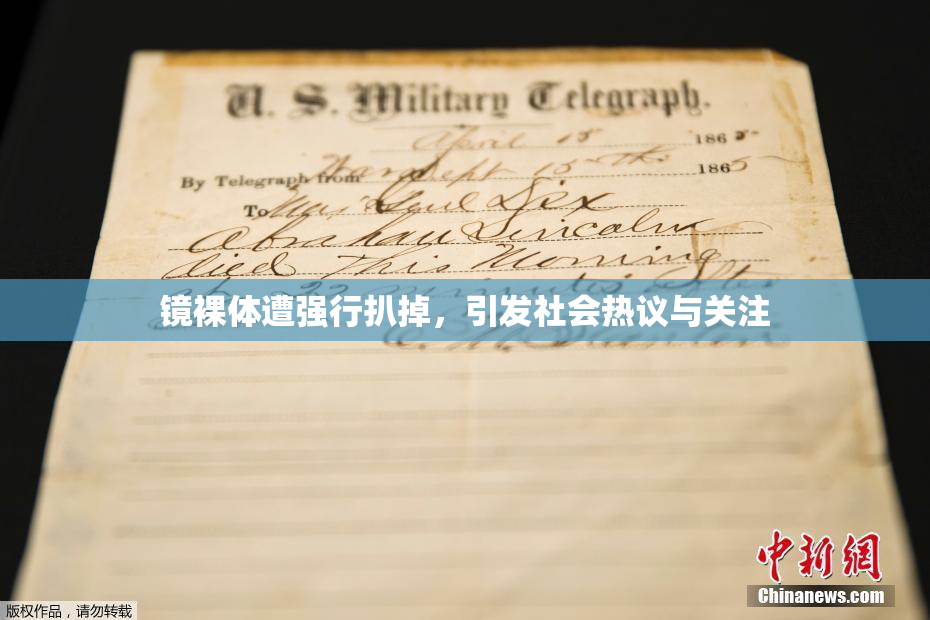 U. S. Military Telegraph.
April 15 1865
By Telegraph from War Dept 15th 1865
To Maj Genl Dix
Abraham Lincoln
died This Morning
at 22 minutes after
镜裸体遭强行扒掉，引发社会热议与关注
E. M. Stanton
中新网
Chinanews.com
版权作品，请勿转载